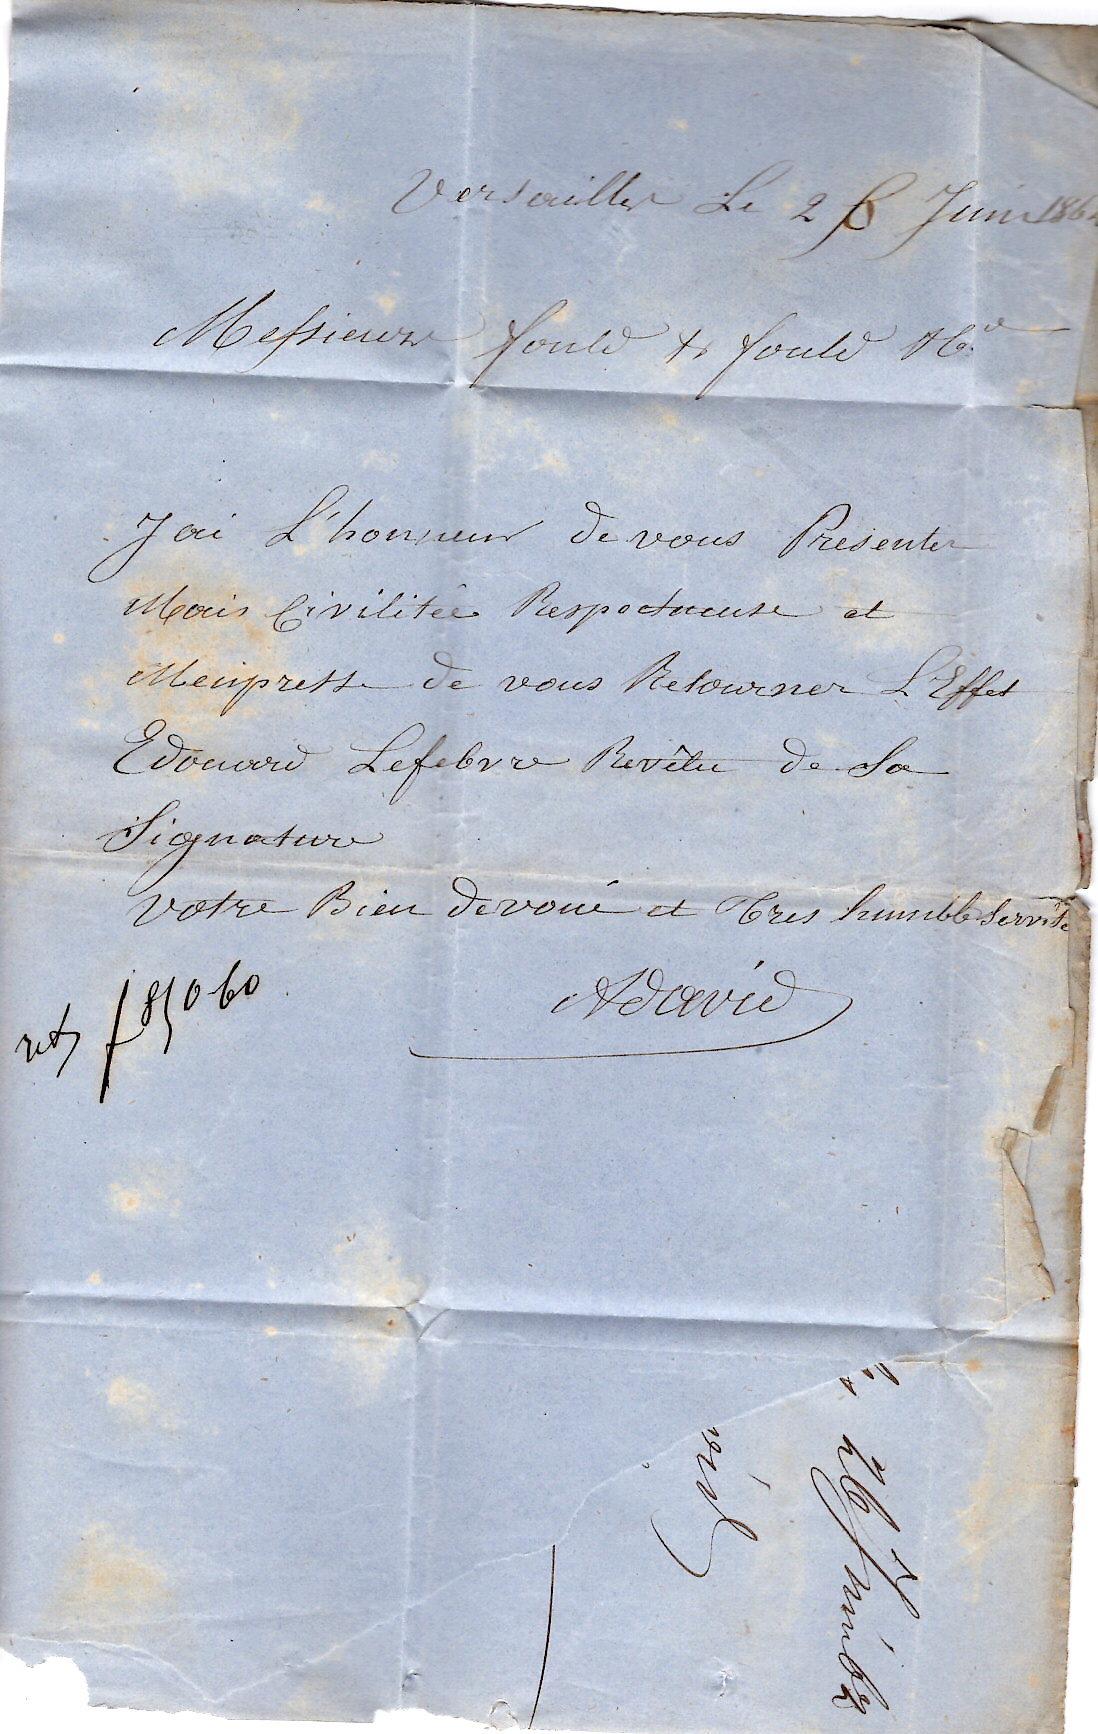 Versailles Le 26 Juin 186
Messieurs fould & fould & Cie
Jai L'honneur de vous Presenter
Mais Civilitée Respectueuse et
Meupresse de vous Retourner L'Effet
Edouard Lefebvre Revêtu de Sa
Signature
votre Bien devoué et Tres humble Servite
ADavid
f 850 60
26 Juin 62